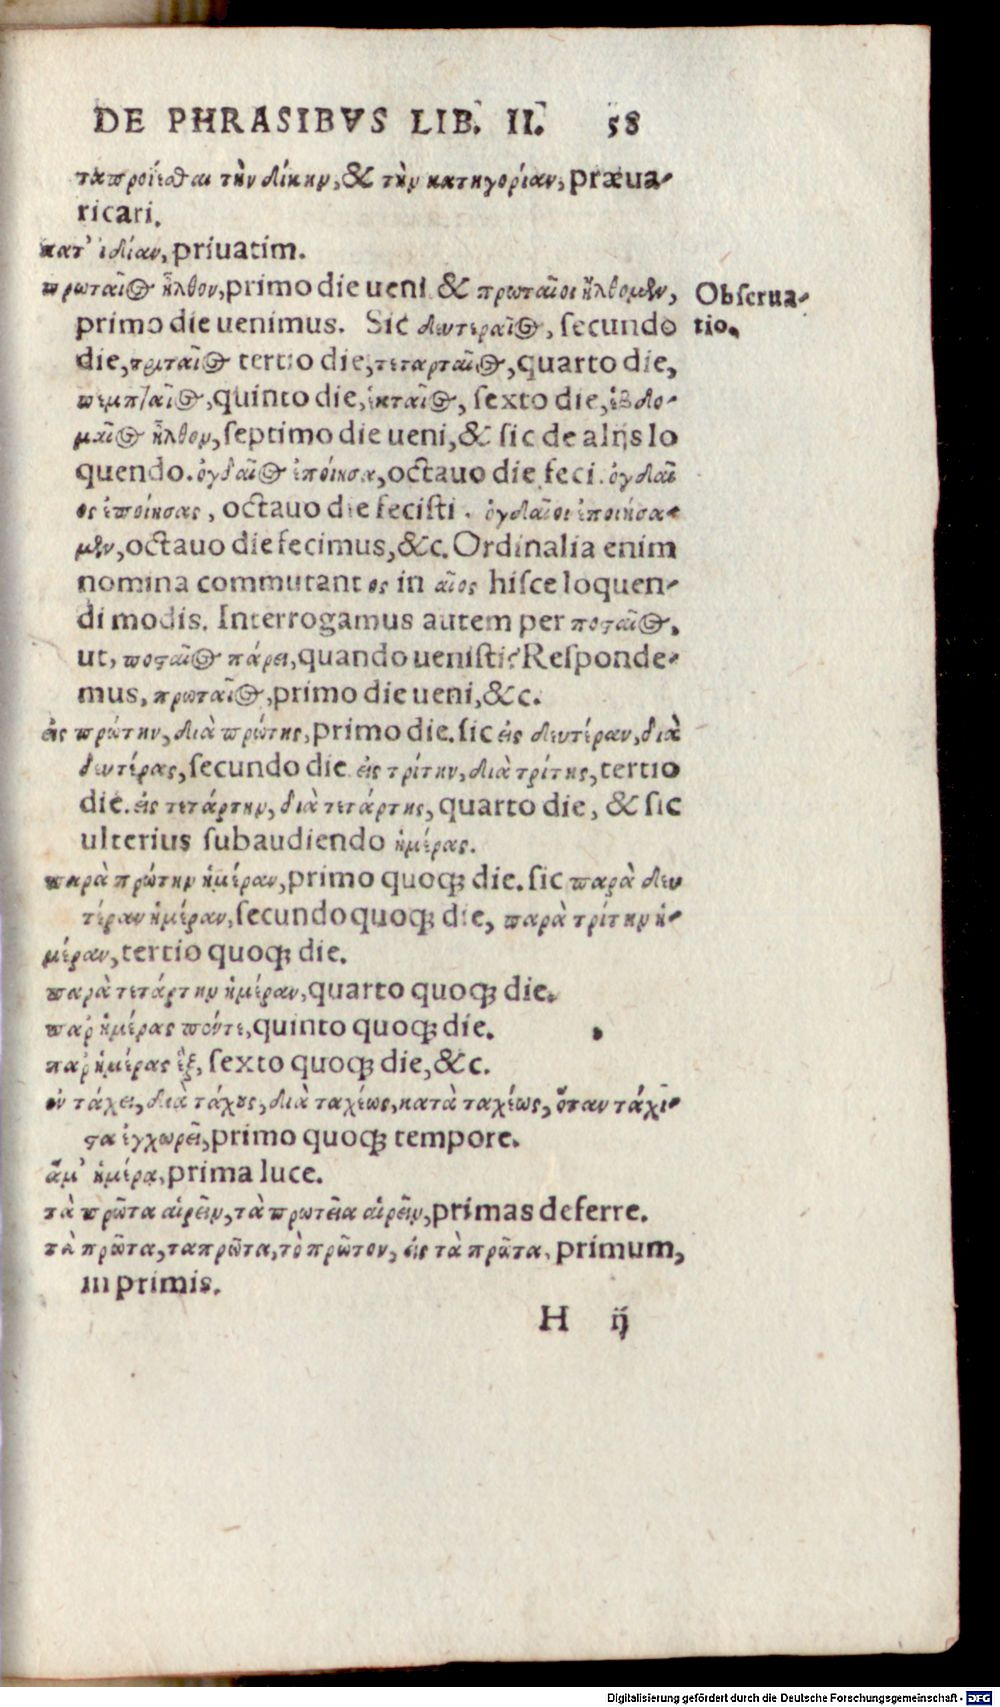 DE PHRASIBVS LIB. II. 58
ταπροΐεσθαι τὴν δίκην, & τὴν κατηγορίαν, præua-
ricari.
κατ' ἰδίαν, priuatim.
πρωταῖος ἦλθον, primo die ueni & πρωταῖοι ἤλθομεν,
Obserua-
tio.
primo die uenimus. Sic δευτεραῖος, secundo
die, τριταῖος tertio die, τεταρταῖος, quarto die,
πεμπταῖος, quinto die, ἑκταῖος, sexto die, ἑβδο-
μαῖος ἦλθον, septimo die ueni, & sic de alijs lo
quendo. ὀγδαῖος ἐποίησα, octauo die feci. ὀγδαῖ
ος ἐποίησας, octauo die fecisti. ὀγδαῖοι ἐποιήσα-
μεν, octauo die fecimus, &c. Ordinalia enim
nomina commutant ος in αῖος hisce loquen-
di modis. Interrogamus autem per ποσταῖος,
ut, ποσταῖος πάρει, quando uenisti? Responde-
mus, πρωταῖος, primo die ueni, &c.
εἰς πρώτην, διὰ πρώτης, primo die. sic εἰς δευτέραν, διὰ
δευτέρας, secundo die εἰς τρίτην, διὰ τρίτης, tertio
die. εἰς τετάρτην, διὰ τετάρτης, quarto die, & sic
ulterius subaudiendo ἡμέρας.
παρὰ πρώτην ἡμέραν, primo quoq; die. sic παρὰ δευ
τέραν ἡμέραν, secundo quoq; die, παρὰ τρίτην ἡ-
μέραν, tertio quoq; die.
παρὰ τετάρτην ἡμέραν, quarto quoq; die.
παρ ἡμέρας πέντε, quinto quoq; die.
παρ ἡμέρας ἓξ, sexto quoq; die, &c.
ἐν τάχει, διὰ τάχους, διὰ ταχέως, κατὰ ταχέως, ὅταν τάχι-
στα ἐγχωρεῖ, primo quoq; tempore.
ἅμ' ἡμέρα, prima luce.
τὰ πρῶτα αἱρεῖν, τὰ πρωτεῖα αἱρεῖν, primas deferre.
τὰ πρῶτα, ταπρῶτα, τὸ πρῶτον, εἰς τὰ πρῶτα, primum,
in primis.
H ij
Digitalisierung gefördert durch die Deutsche Forschungsgemeinschaft - DFG